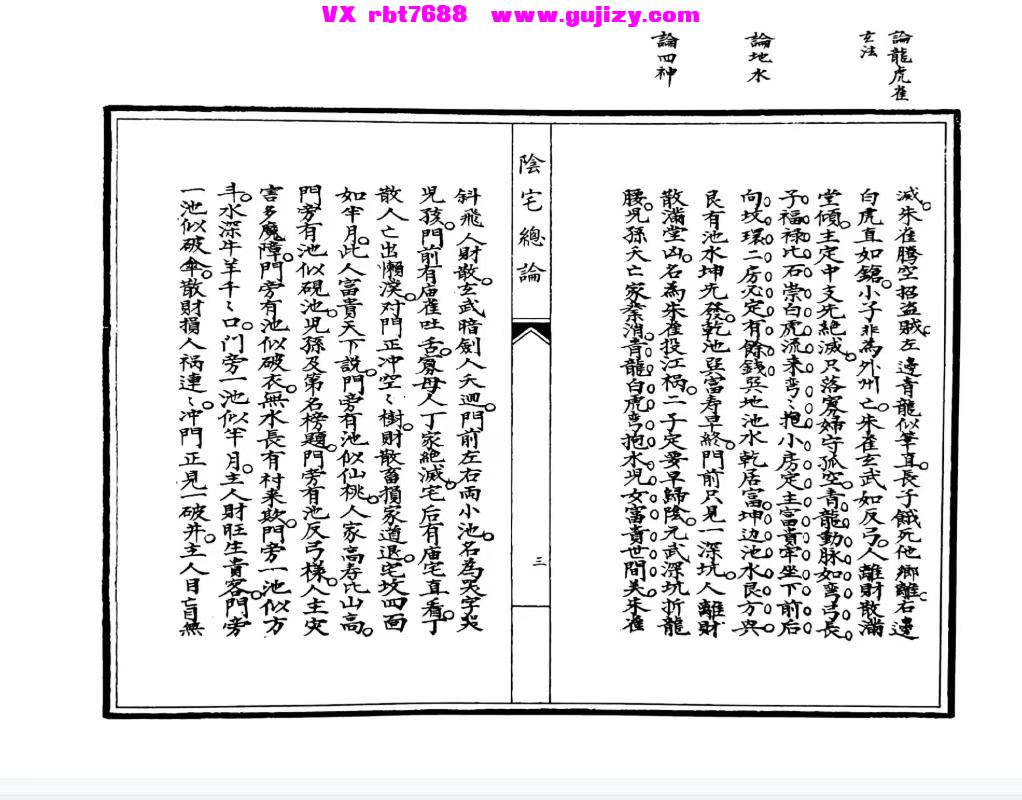 VX rbt7688 www.gujizy.com
論龍虎雀
玄法
論地水
論四神
滅。朱雀騰空招盜賊。左邊青龍似筆直。長子餓死他鄉離。右邊
白虎直如鎗。小子非為外州亡。朱雀玄武如反弓。人離財散滿
堂傾。主定中支先絕滅。只落寡婦守孤空。青龍動脉如彎弓。長
子福祿比石崇。白虎流来彎彎抱。小房定主富貴牢。坐下前后
向坟環。二房必定有餘錢。巽地池水乾居富。坤边池水艮方興
艮有池水坤先發。乾池巽富寿早終。門前只見一深坑。人離財
散滿堂凶。名為朱雀投江禍。二子定要早歸陰。元武深坑折龍
腰。児孫夭亡家業消。青龍白虎彎抱水。児女富貴世間美。朱雀
陰宅總論
三
斜飛人財散。玄武暗劍人夭迴。門前左右兩小池。名為哭字哭
児孩。門前有庙雀吐舌。寡母人丁家絕滅。宅后有庙宅直看。丁
散人亡出懶漢。对門正冲空空樹。財散畜損家道退。宅坟四面
如半月。此人富貴天下説。門旁有池似仙桃。人家高寿比山高。
門旁有池似硯池。児孫及第名榜題。門旁有池反弓樣。人主灾
害多魔障。門旁有池似破衣。無水長有村来欺。門旁一池似方
斗。水深牛羊千千口。门旁一池似半月。主人財旺生貴客。門旁
一池似破傘。散財損人禍連連。冲門正見一破井。主人目盲無